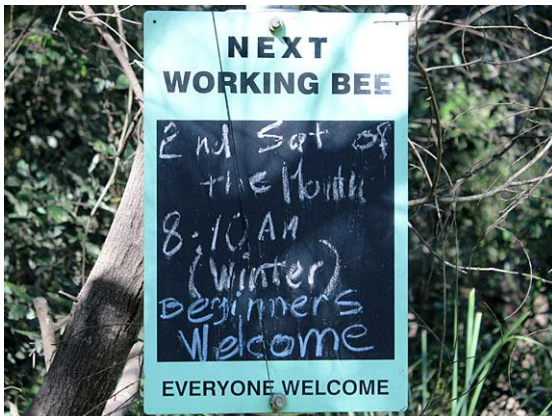 NEXT
WORKING BEE
2nd Sat of
the Month
8.10AM
(Winter)
Beginners
Welcome
EVERYONE WELCOME